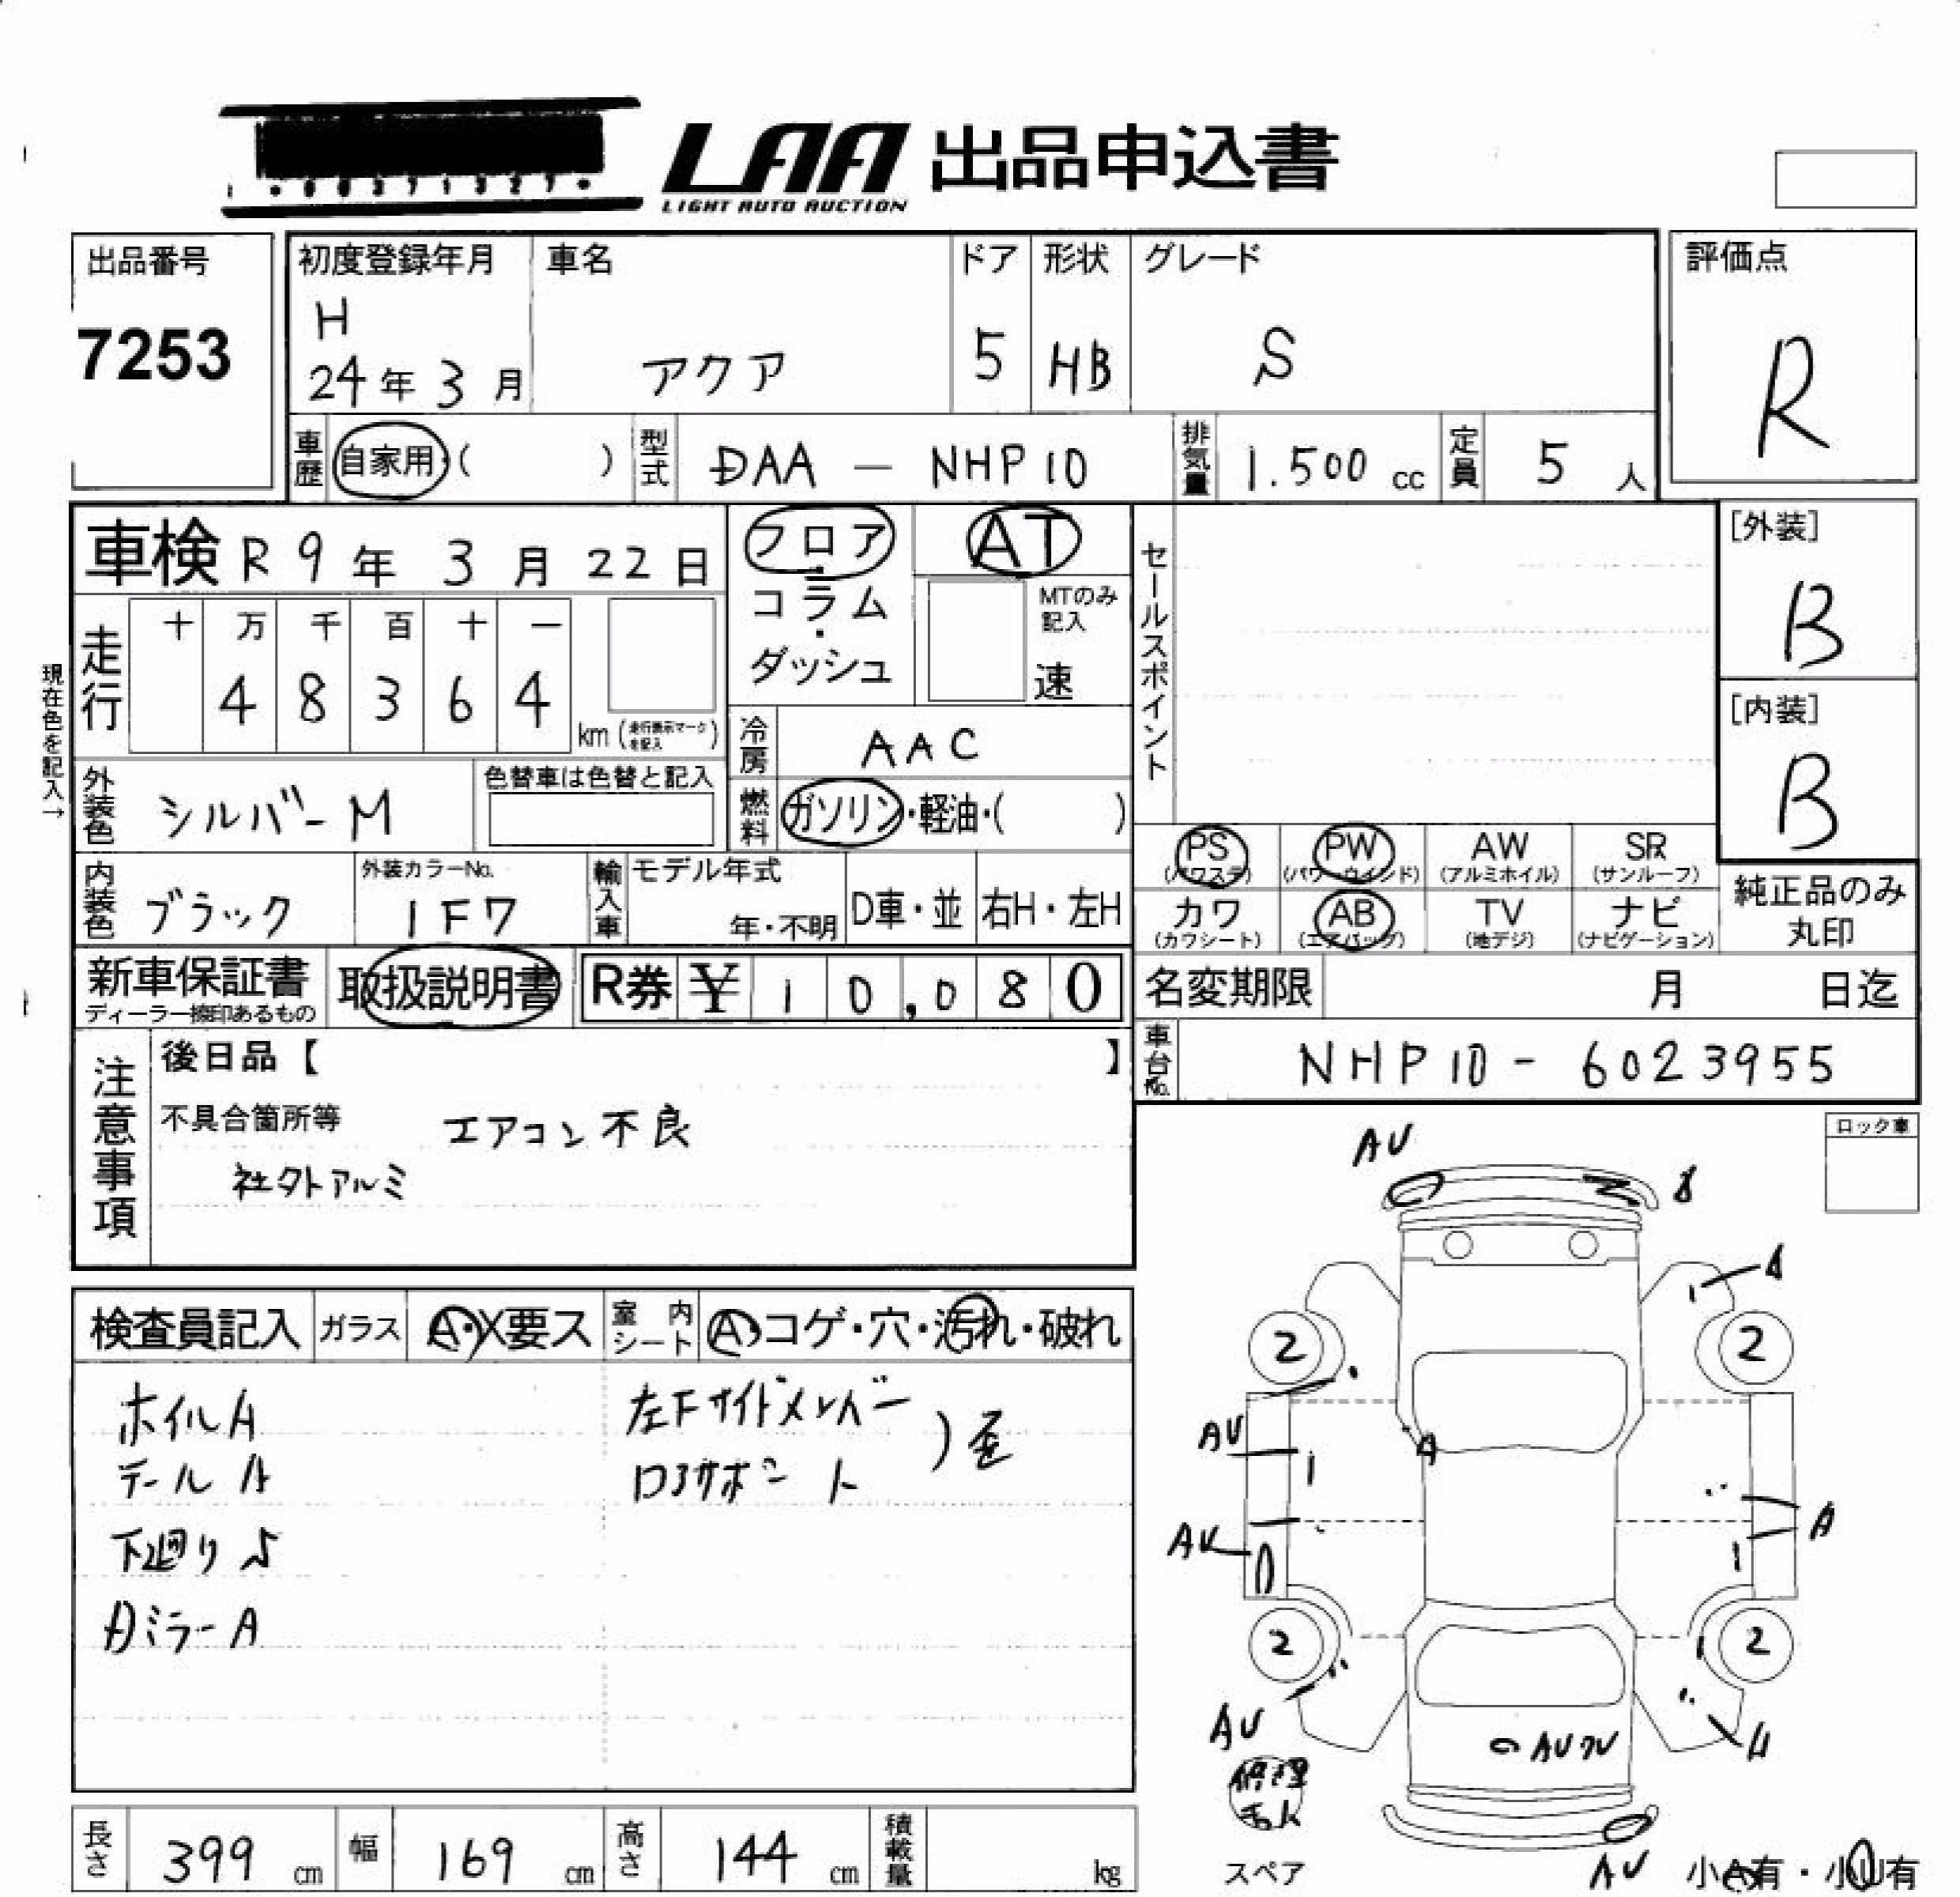 LAA 出品申込書
LIGHT AUTO AUCTION
出品番号
7253
初度登録年月
H
24年 3月
車名
アクア
ドア
5
形状
HB
グレード
S
評価点
R
車歴
自家用・( )
型式
DAA - NHP10
排気量
1.500 cc
定員
5 人
車検 R 9年 3月 22日
フロア
・
コラム
・
ダッシュ
AT
MTのみ
記入
速
セールスポイント
[外装]
B
[内装]
B
走行
十 万 千 百 十 一
4 8 3 6 4
km (走行表示マークを記入)
現在色を記入→
冷房
AAC
外装色
シルバーM
色替車は色替と記入
燃料
ガソリン・軽油・( )
PS
(パワステ)
PW
(パワーウインド)
AW
(アルミホイル)
SR
(サンルーフ)
内装色
ブラック
外装カラーNo.
1F7
輸入車
モデル年式
年・不明
D車・並
右H・左H
カワ
(カワシート)
AB
(エアバッグ)
TV
(地デジ)
ナビ
(ナビゲーション)
純正品のみ
丸印
新車保証書
ディーラー捺印あるもの
取扱説明書
R券 ¥ 1 0,0 8 0
名変期限 月 日迄
車台No.
NHP10 - 6023955
注意事項
後日品【 】
不具合箇所等
エアコン不良
社外アルミ
ロック車
AV
A
2
2
AV
1
A
A
1
2
2
AV
AV
AV
検査員記入
ガラス
A・X要ス
室内シート
A・コゲ・穴・汚れ・破れ
ホイルA
テールA
下廻り
ミラーA
左Fサイドメンバー
コアサポート
)歪
長さ
399 cm
幅
169 cm
高さ
144 cm
積載量
kg
スペア
小A有・小U有